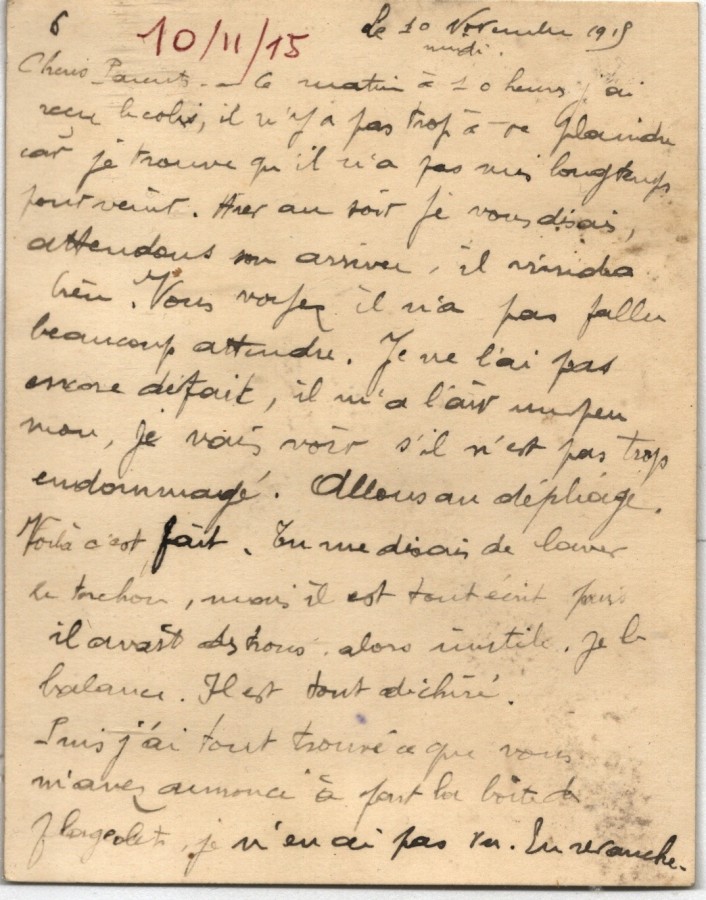 6 10/11/15 le 10 Novembre 1915
midi.
Chers Parents - Ce matin à 10 heures j'ai
reçu le colis, il n'y a pas trop à se plaindre
car je trouve qu'il n'a pas mis longtemps
pour venir. Hier au soir je vous disais,
attendons son arrivée, il viendra
bien. Vous voyez il n'a pas fallu
beaucoup attendre. Je ne l'ai pas
encore défait, il m'a l'air un peu
mou, je vais voir s'il n'est pas trop
endommagé. Allons au dépliage.
Voilà c'est fait. Tu me disais de laver
le torchon, mais il est tout écrit puis
il avait des trous. alors inutile. je le
balance. Il est tout déchiré.
Puis j'ai tout trouvé ce que vous
m'avez annoncé à part la boîte de
flageolets, je n'en ai pas vu. En revanche-